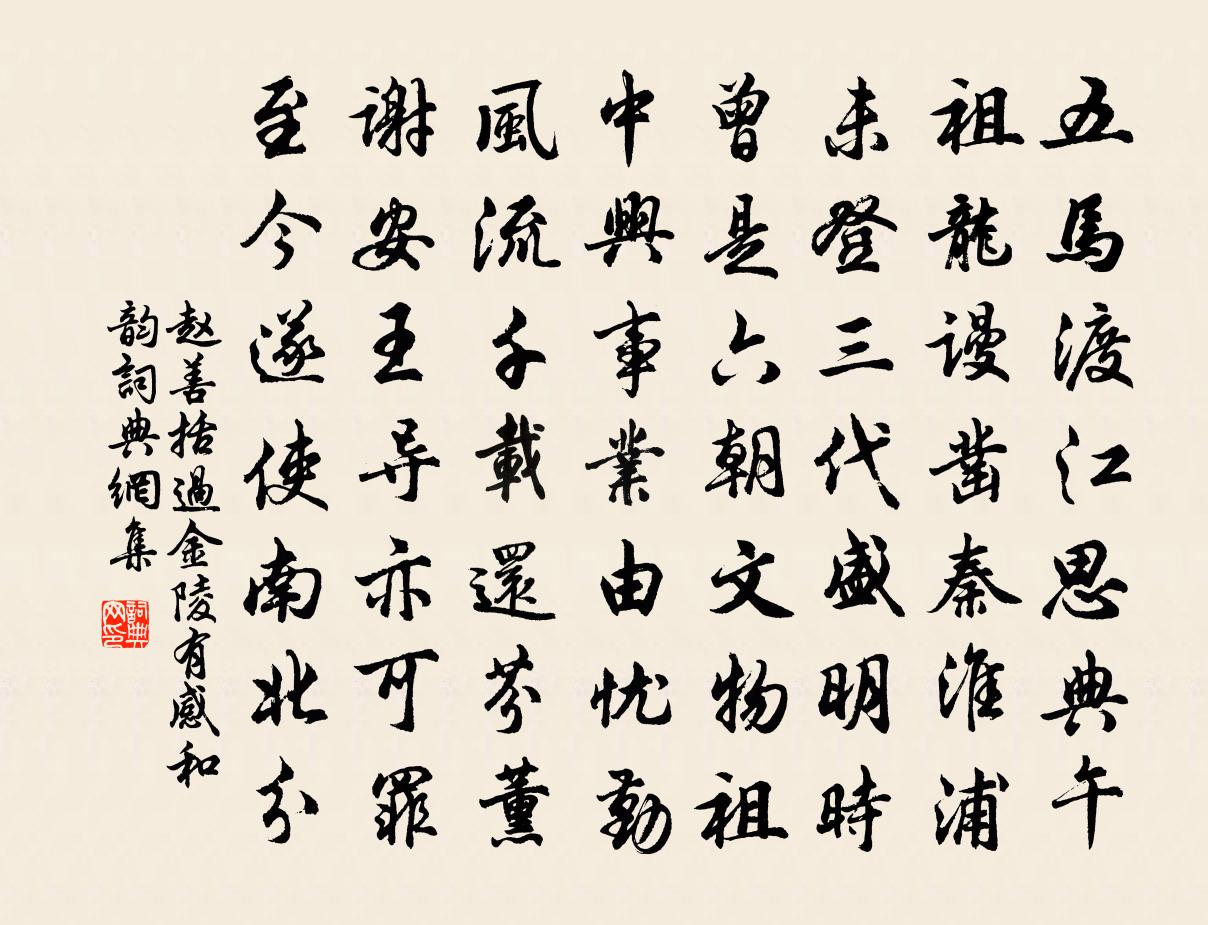 五馬渡江思典午
祖龍謾凿秦淮浦
未登三代盛明時
曾是六朝文物祖
中興事業由忧勤
風流千載還芬薰
谢安王导亦可罪
至今遂使南北分
赵善括過金陵有感和
韵詞典網集
詞典网印